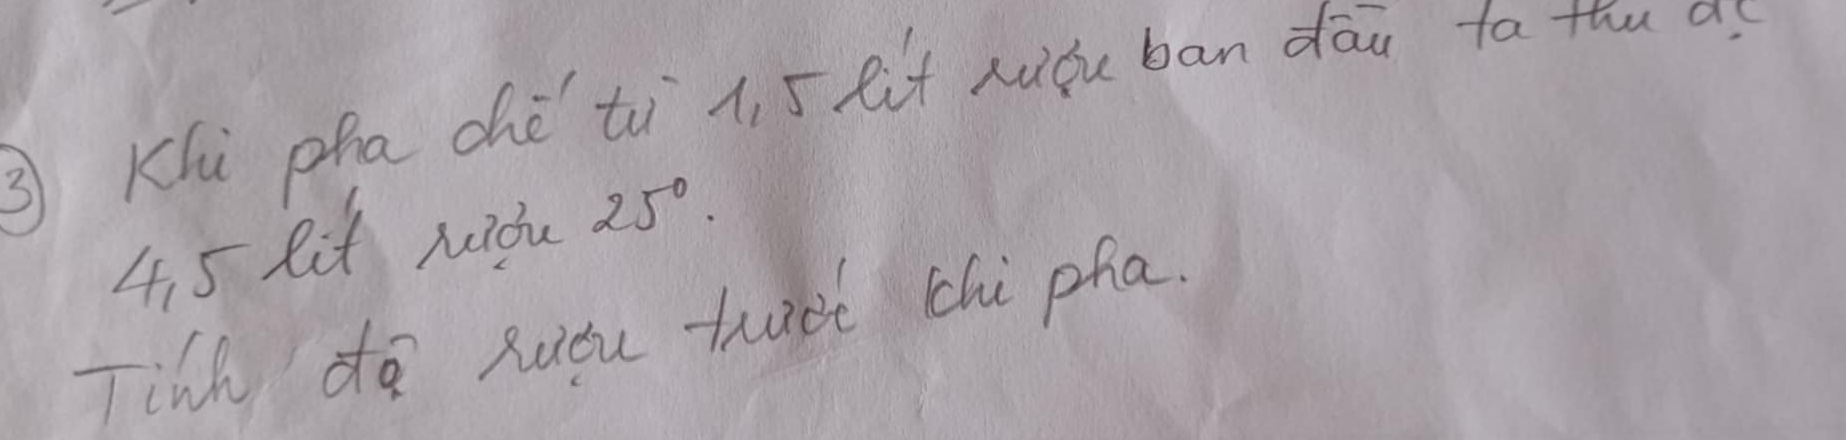 ③ Khi pha chế từ 1,5 lít rượu ban đầu ta thu đc
4,5 lít rượu 25°.
Tính độ rượu trước khi pha.